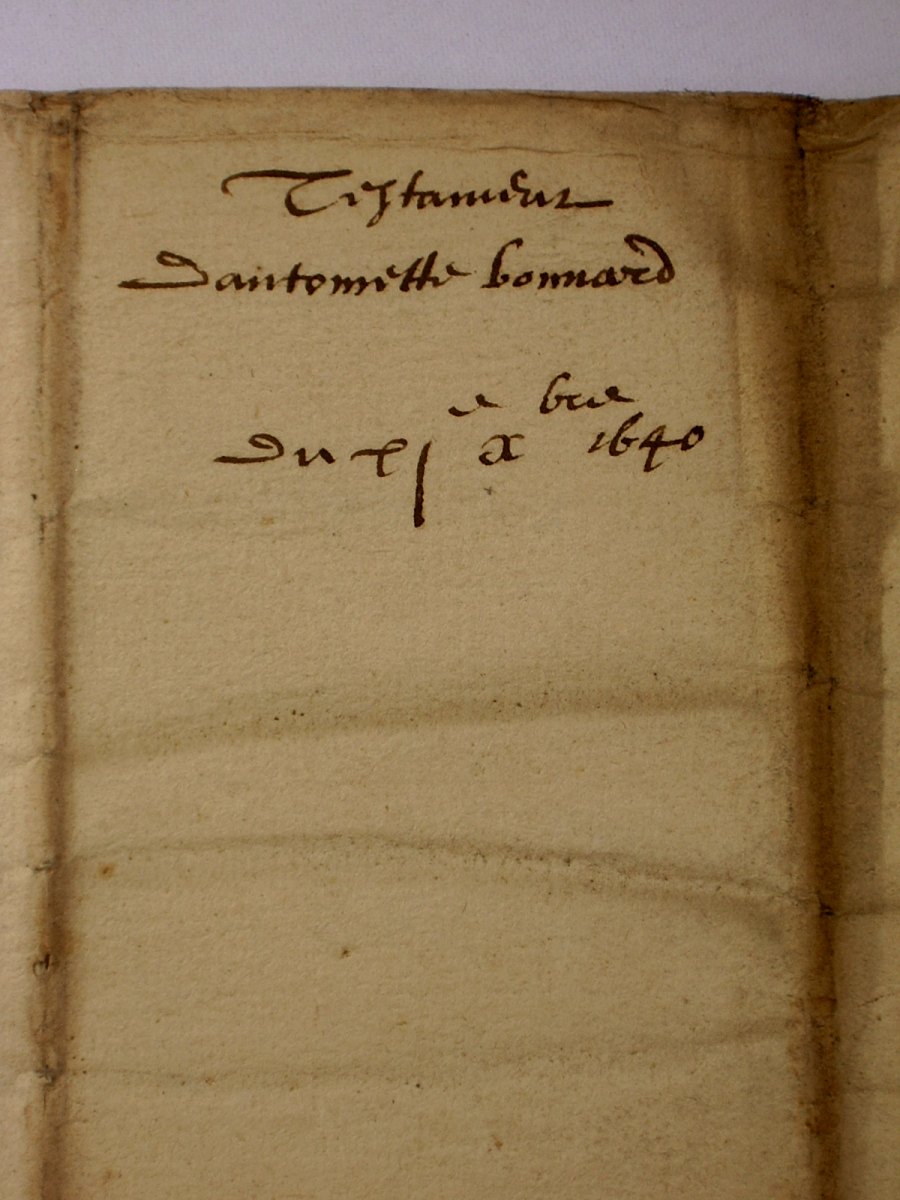 Testament
dantoinette bonnard
du xj^e x^bre 1640